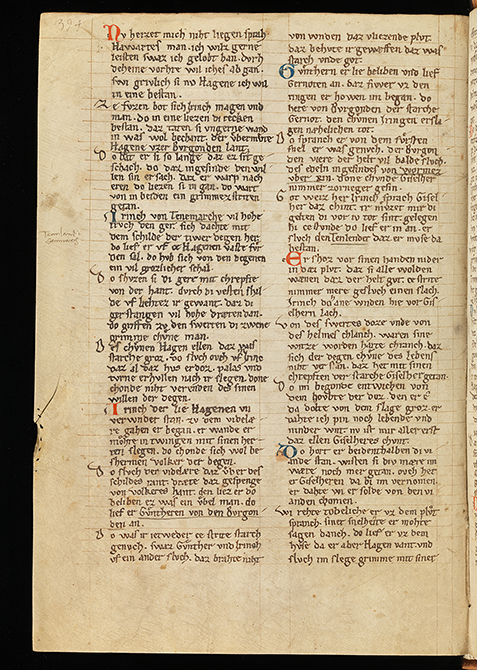 394
Nv herzet mich niht liegen sprah
Hawartes man. ich wilz gerne
leisten swaz ich gelobt han. dvrh
deheine vorhte wil ichs ab gan.
swi grivlich si nv Hagene ich wil
in eine bestan.
Ze fvzen bot sich Irinch magen vnd
man. do in eine liezen di recken
bestan. daz taten si vngerne wand
in was wol bechant. der vbermvte
Hagene vzer Bvrgonden lant.
Do bat er si so lange daz ez sit ge
schach. do daz ingesinde den wil
len sin ersach. daz er warp nach
eren do liezen si in gan. do wart
von in beiden ein grimmez striten
getan.
Irinch von Tenemarche vil hohe
trvch den ger. sich dachte mit
dem schilde der tiwer degen her.
do lief er vf ce Hagenen vaste fvr
den sal. do hvb sich von den degenen
ein vil grozlicher schal.
Do schvzen si di gere mit chreften
von der hant. dvrch di vesten schil
de vf liehtez ir gewant. daz di
gerstangen vil hohe dræten dan.
do griffen zv den swerten di zwene
grimme chvne man.
Des chvnen Hagen ellen daz was
starche groz. do slvch ovch vf in Irinc
daz al daz hvs erdoz. palas vnd
tvrne erhvllen nach ir slegen. done
chonde niht verenden des sinen
willen der degen.
Irinch der lie Hagenen vn
verwvndet stan. zv dem videlæ
re gahen er began. er wande er
mohte in twingen mit sinen her
ten slegen. do chonde sich wol be
schermen Volker der degen.
Do slvch der videlære daz vber des
schildes rant dræte daz gespenge
von Volkeres hant. den liez er do
beliben ez was ein vbel man. do
lief er Gvntheren von den Bvrgon
den an.
Do was ir ietweder ce strite starch
genvch. swaz Gvnther vnd Irinch
vf ein ander slvch. daz brahte niht
von wnden daz vliezende plvt.
daz behvte ir gewæffen daz was
starch vnde gvt.
Gvnthern er lie beliben vnd lief
Gernoten an. daz fiwer vz den
ringen er howen im began. do
hete von Bvrgonden der starche
Gernot. den chvnen Iringen ersla
gen næhelichen tot.
Do spranch er von dem fvrsten
snel er was genvch. der Bvrgon
den viere der helt vil balde slvch.
des edeln ingesindes von Wormez
vber Rin. done chvnde Giselher
nimmer zorneger gesin.
Got weiz her Irinch sprach Gisel
her daz chint. ir mvzet mir di
gelten di vor iv tot sint gelegen
hi cestvnde do lief er in an. er
slvch den Tenlender daz er mvse da
bestan.
Er schoz vor sinen handen nider
in daz plvt. daz si alle wolden
wænen daz der helt gvt. ce strite
nimmer mere geslvge einen slach.
Irinch do ane wnden hie vor Gis
elhern lach.
Von des swertes doze vnde von
des helmes chlanch. waren sine
witze worden harte chranch. daz
sich der degen chvne des lebens
niht verstan. daz het mit sinen
chreften der starche Giselher getan.
Do im begonde entwichen von
dem hovbte der doz. den er e
da dolte von dem slage groz. er
dahte ich pin noch lebende vnd
ninder wnt. nv ist mir aller erst
daz ellen Giselheres chvnt.
Do hort er beidenthalben di vi
ande stan. wisten si div mære im
wære noch mer getan. ovch het
er Giselheren da bi im vernomen.
er dahte wi er solde von den vi
anden chomen.
wi rehte tobeliche er vz dem plvt
spranch. siner snelheite er mohte
sagen danch. do lief er vz dem
hvse da er aber Hagen vant. vnd
slvch im slege grimme mit siner